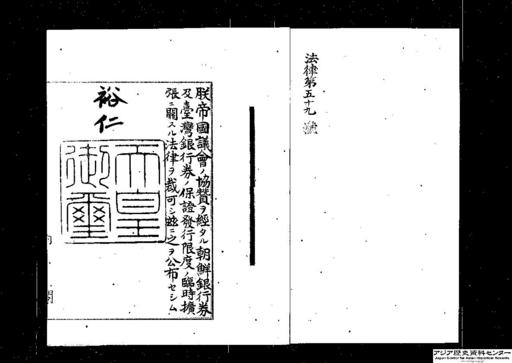 法律第五十九號
朕帝國議會ノ協賛ヲ經タル朝鮮銀行券
及臺灣銀行券ノ保證發行限度ノ臨時擴
張ニ關スル法律ヲ裁可シ茲ニ之ヲ公布セシム
裕仁
天皇
御璽
内閣
アジア歴史資料センター
Japan Center for Asian Historical Records